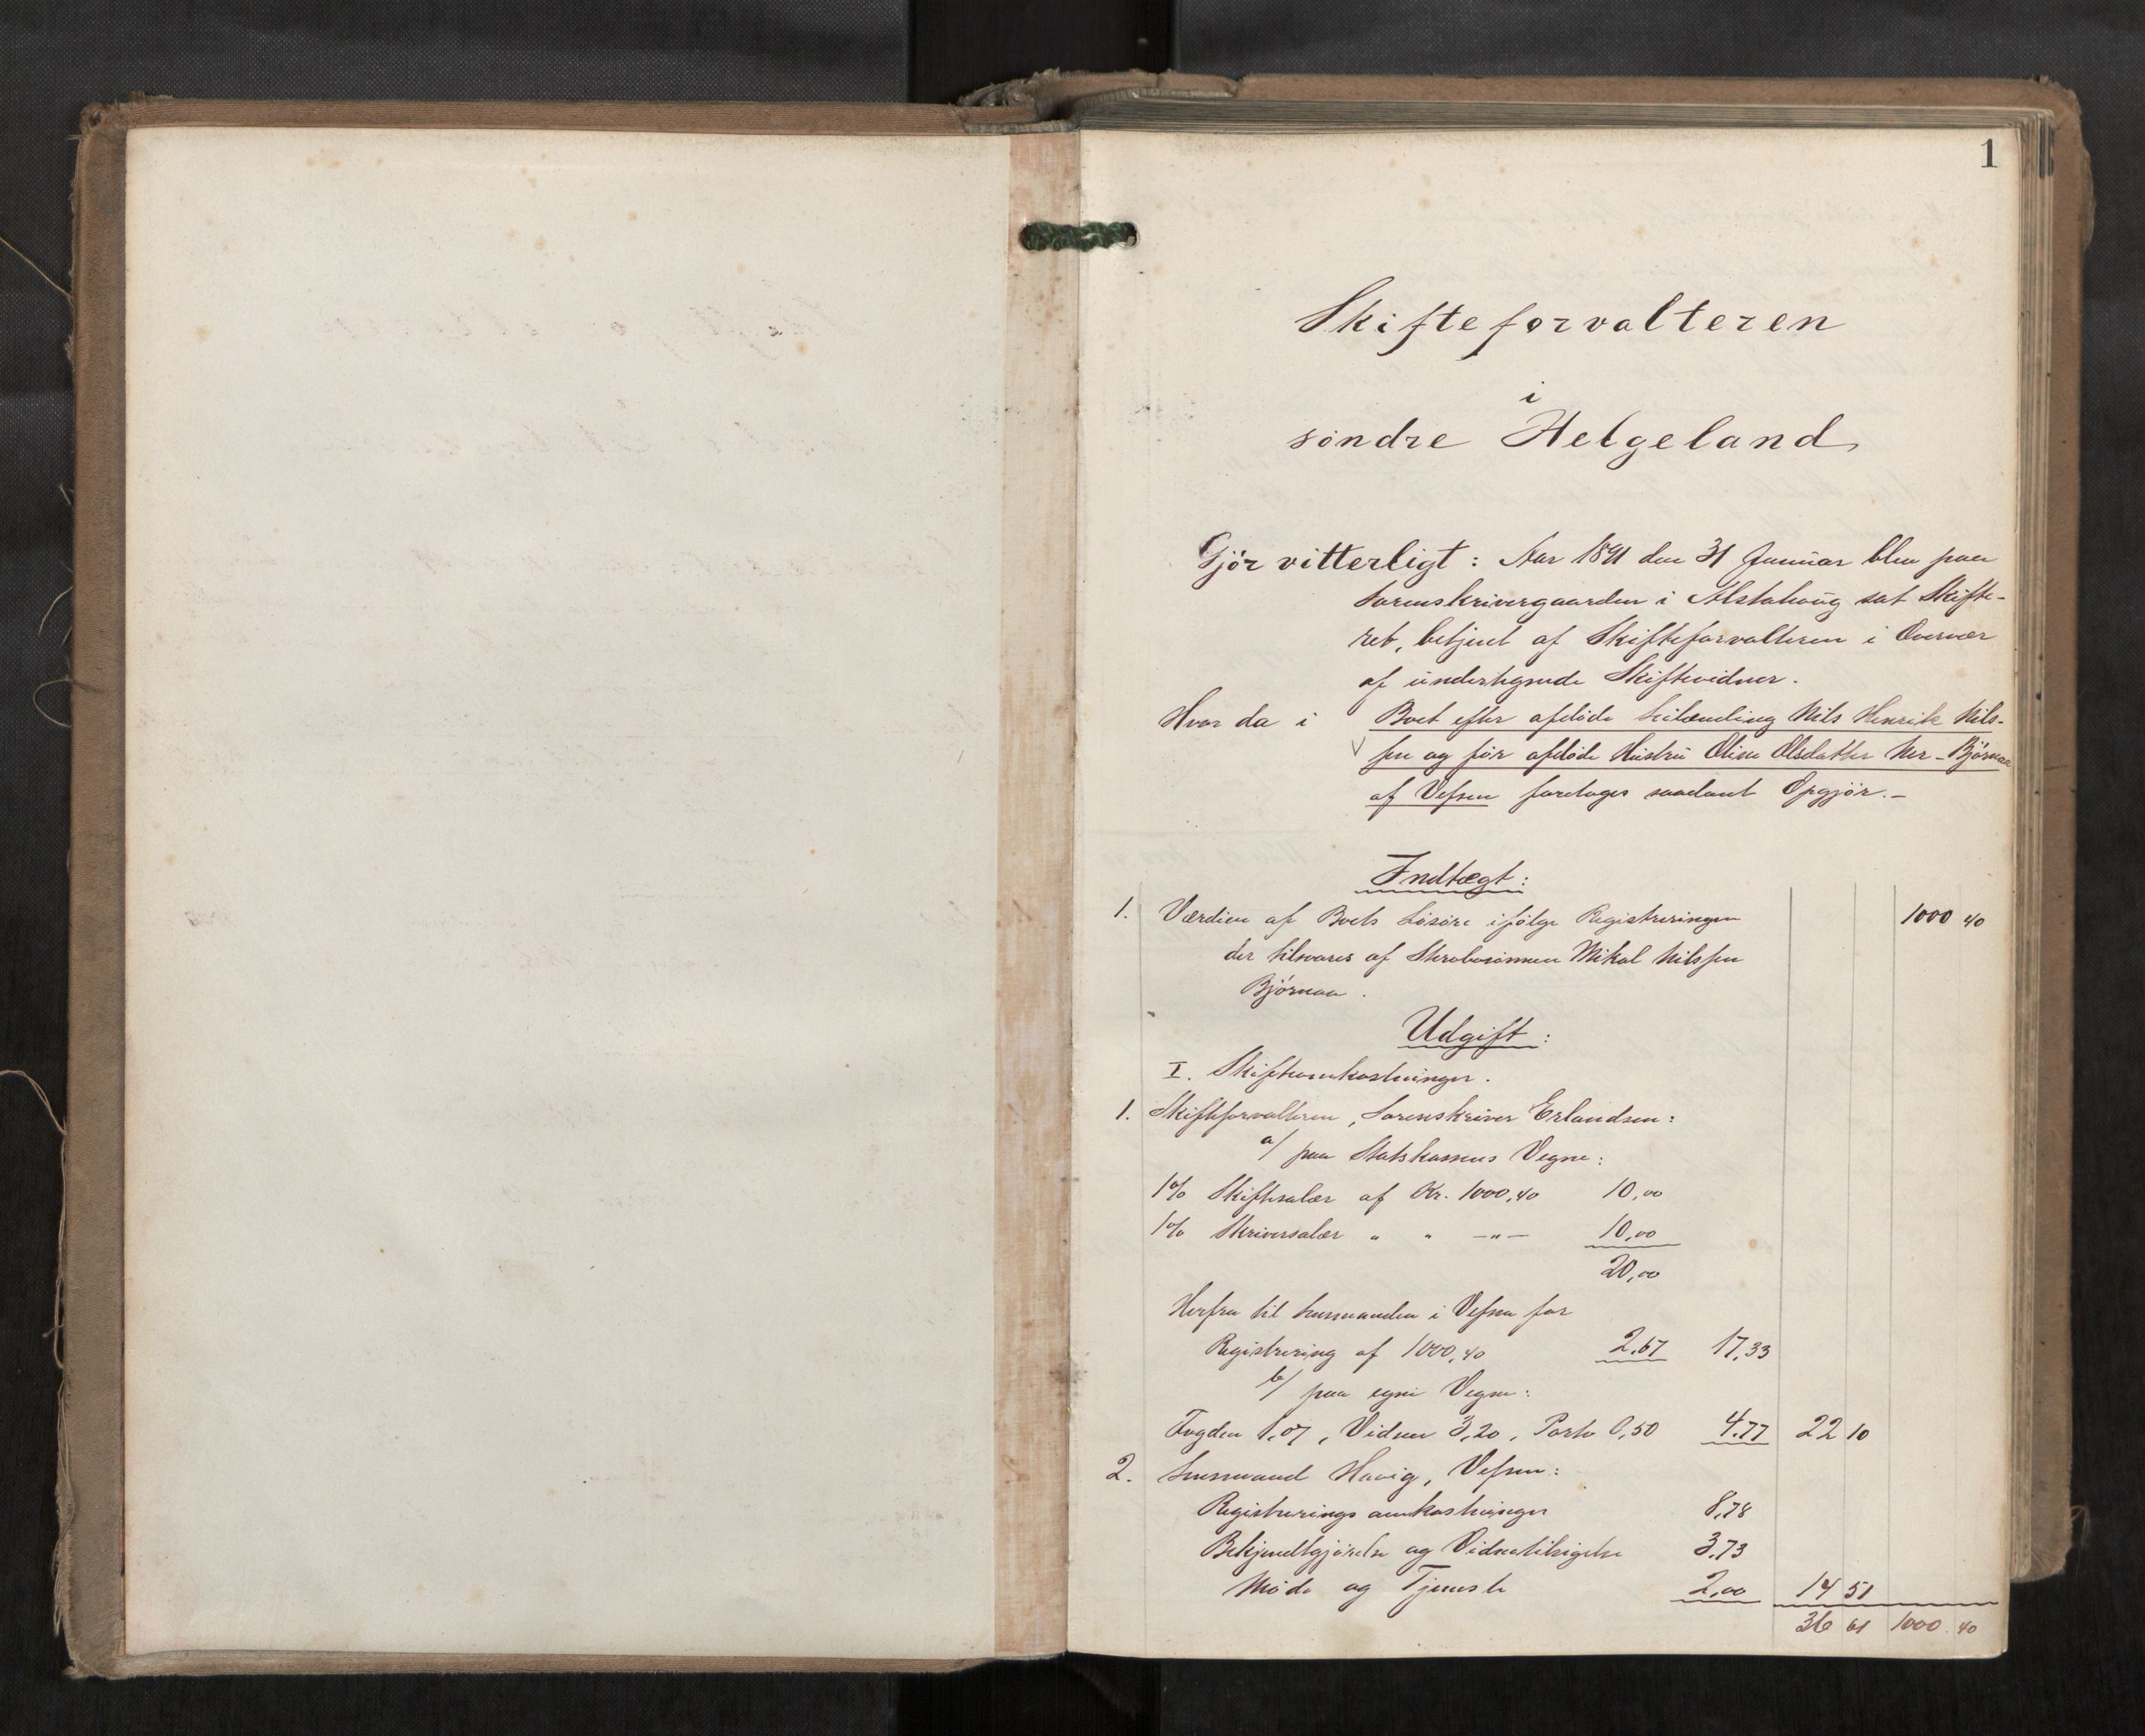 1
Skifteforvalteren
i
söndre Helgeland
Gjör vitterligt: Aar 1891 den 31 Januar blev paa
Sorenskrivergaarden i Alstahoug sat Skifte-
ret, betjent af Skifteforvalteren i Overvær
af undertegnede Skiftevidner.
Hvor da i Boet efter afdöde Leilænding Nils Henrik Nils-
sen og för afdöde Hustru Oline Olsdatter Ner-Björnaa
af Vefsen foretoges saadant Opgjör.-
Indtægt:
1. Værdien af Boets Lösöre ifölge Registreringen 1000 40
der tilsvares af Sterbosönnen Mikal Nilssen
Björnaa.
Udgift:
I. Skifteomkostninger.
1. Skifteforvalteren, Sorenskriver Erlandsen:
a/ paa Statskassens Vegne:
1% Skiftesalær af Kr. 1000,40 10,00
1% Skriversalær " " -"- 10,00
20,00
Herfra til Lensmanden i Vefsen for
Registrering af 1000,40 2,67 17,33
b/ paa egne Vegne:
Fogden 1,07, Vidner 3,20, Porto 0,50 4,77 22 10
2. Lensmand Havig, Vefsen:
Registreringsomkostninger 8,78
Bekjendtgjörelse og Vidnetilsigelse 3,73
Möde og Tjeneste 2,00 14 51
36 61 1000 40